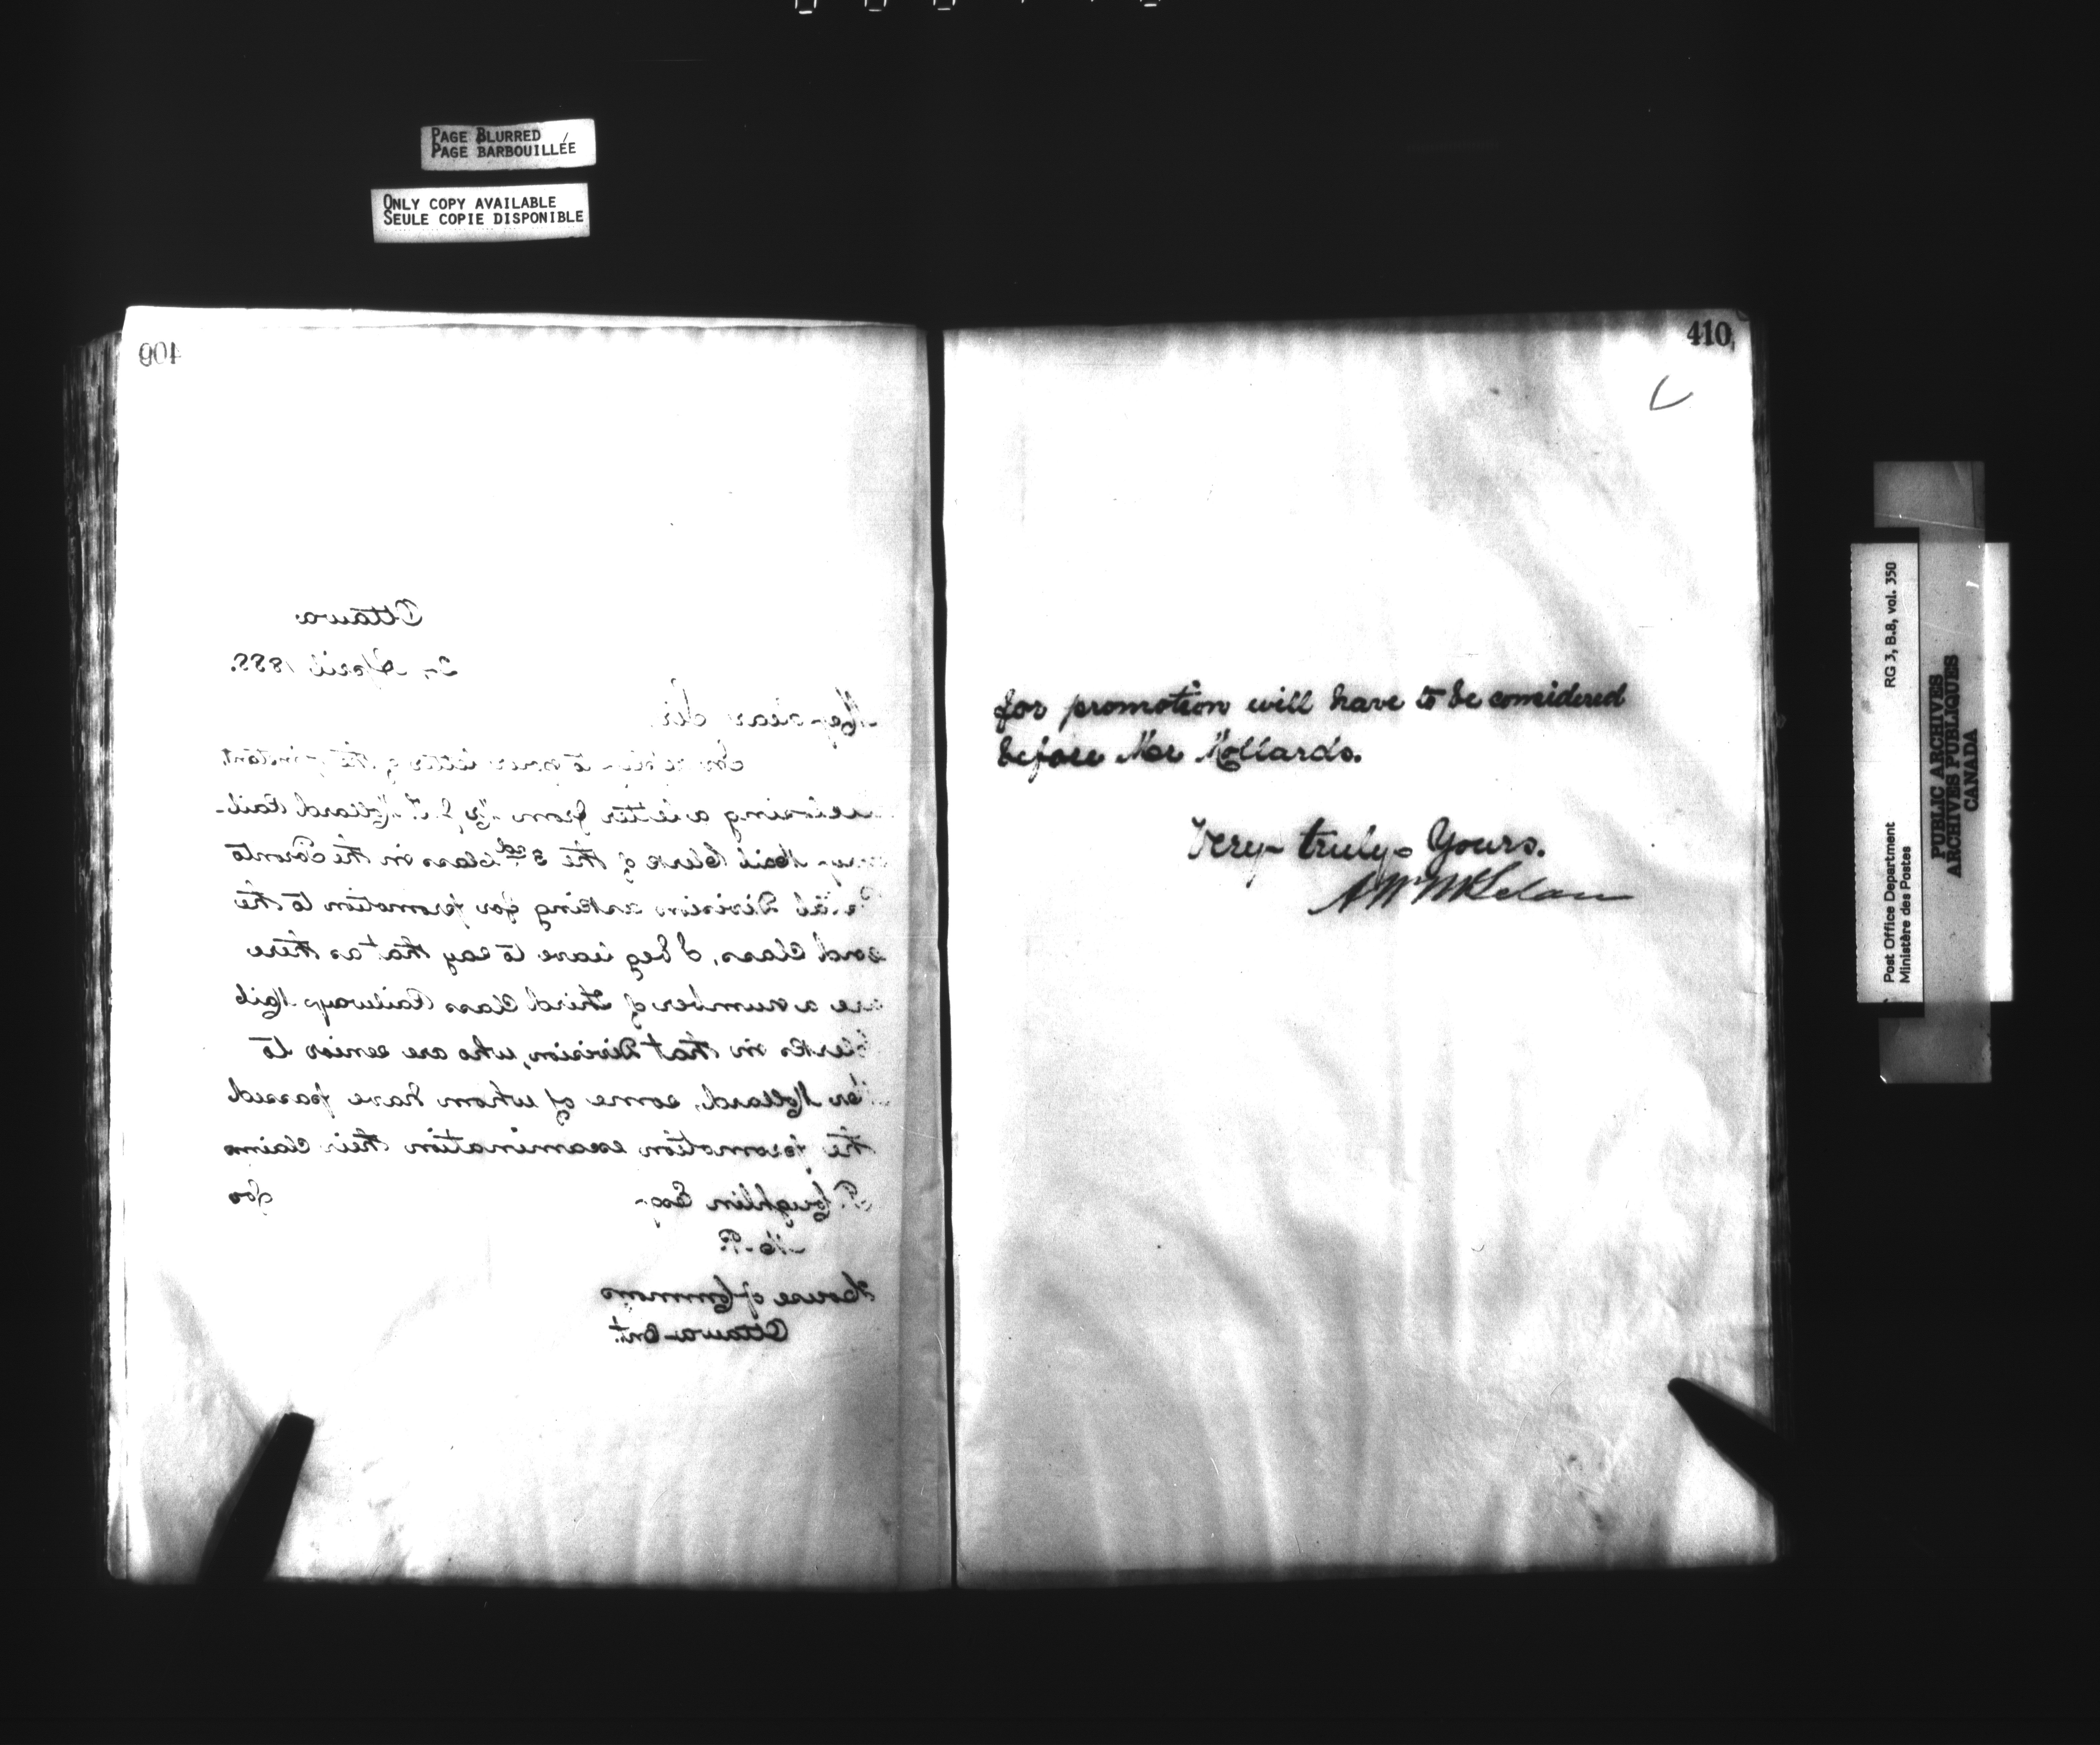 PAGE BLURRED
PAGE BARBOUILLÉE
ONLY COPY AVAILABLE
SEULE COPIE DISPONIBLE
409
Ottawa
April 1888.
My dear Sir,
In reply to your letter of the instant
enclosing a letter from Mr J. Mollard Rail-
way Mail Clerk of the 3rd Class in the Toronto
Postal Division asking for promotion to the
2nd Class, I beg leave to say that as there
are a number of third Class Railway Mail
Clerks in that Division, who are senior to
Mr Mollard, some of whom have passed
the promotion examination their claims
for
Coughlin Esq
M. P.
House of Commons
Ottawa Ont.
410
for promotion will have to be considered
before Mr Mollards.
Very truly Yours.
A W McLelan
Post Office Department RG 3, B.8, vol. 350
Ministère des Postes
PUBLIC ARCHIVES
ARCHIVES PUBLIQUES
CANADA